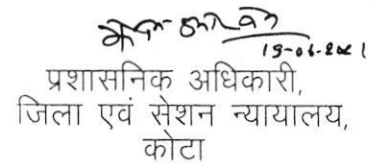 19-06-2021
प्रशासनिक अधिकारी,
जिला एवं सेशन न्यायालय,
कोटा